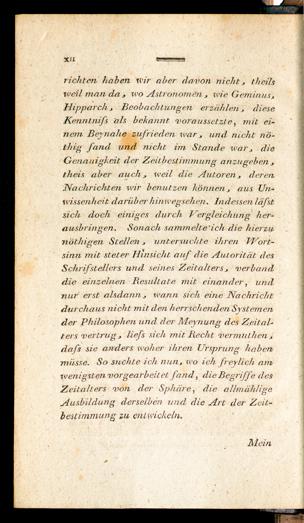 XII
richten haben wir aber davon nicht, theils
weil man da, wo Astronomen, wie Geminus,
Hipparch, Beobachtungen erzählen, diese
Kenntniſs als bekannt voraussetzte, mit ei-
nem Beynahe zufrieden war, und nicht nö-
thig fand und nicht im Stande war, die
Genauigkeit der Zeitbestimmung anzugeben,
theis aber auch, weil die Autoren, deren
Nachrichten wir benutzen können, aus Un-
wissenheit darüber hinwegsehen. Indessen läſst
sich doch einiges durch Vergleichung her-
ausbringen. Sonach sammelte ich die hierzu
nöthigen Stellen, untersuchte ihren Wort-
sinn mit steter Hinsicht auf die Autorität des
Schriftstellers und seines Zeitalters, verband
die einzelnen Resultate mit einander, und
nur erst alsdann, wann sich eine Nachricht
durchaus nicht mit den herrschenden Systemen
der Philosophen und der Meynung des Zeital-
ters vertrug, lieſs sich mit Recht vermuthen,
daſs sie anders woher ihren Ursprung haben
müsse. So suchte ich nun, wo ich freylich am
wenigsten vorgearbeitet fand, die Begriffe des
Zeitalters von der Sphäre, die allmählige
Ausbildung derselben und die Art der Zeit-
bestimmung zu entwickeln.
Mein